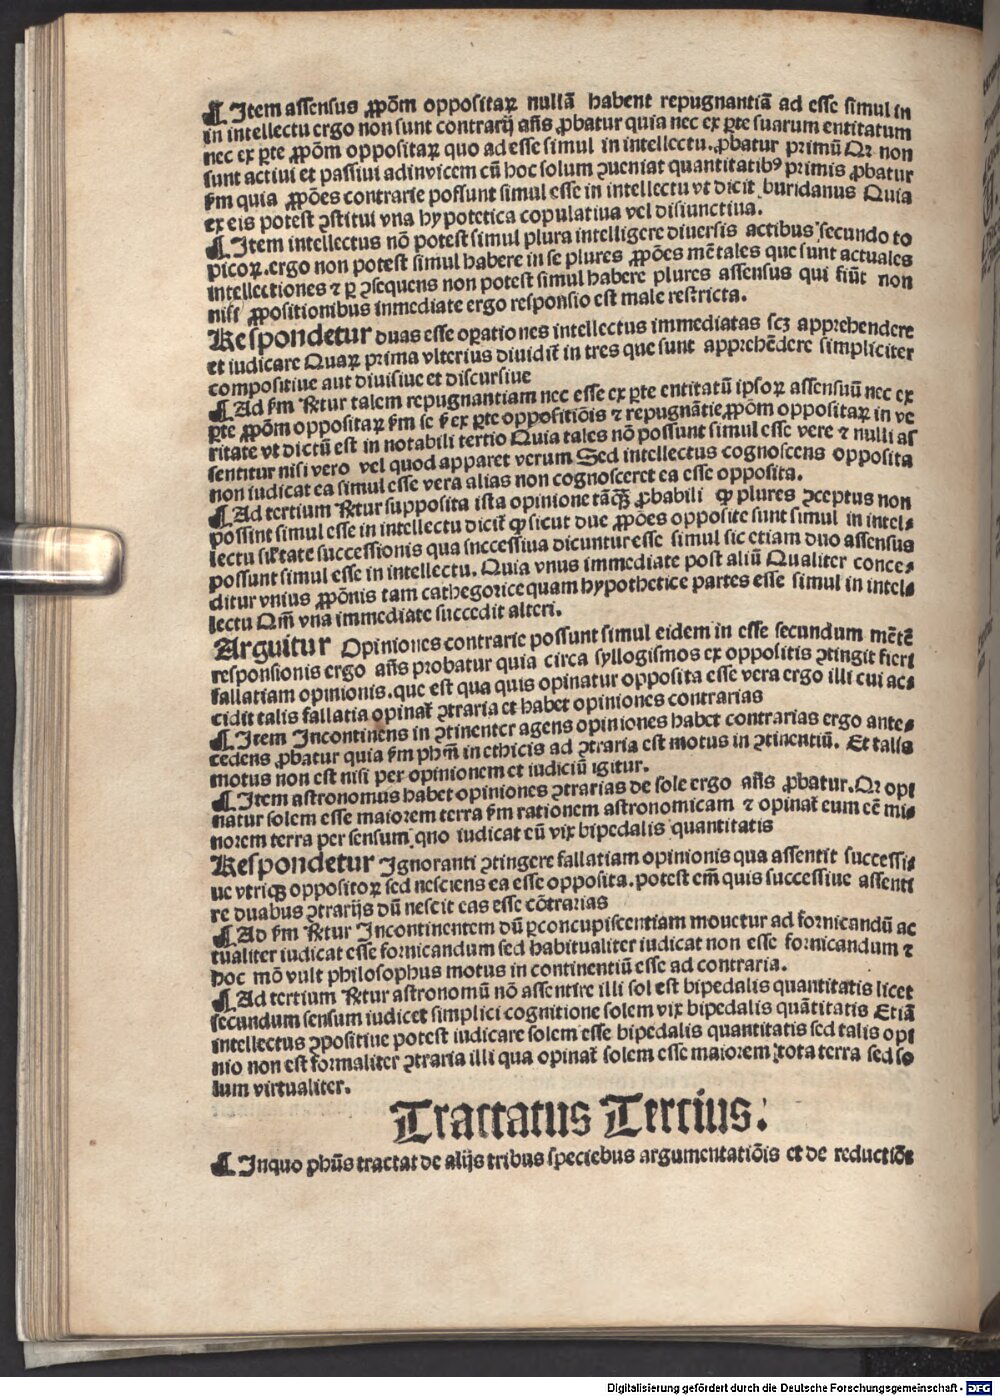 ¶ Item assensus ꝓpōm oppositaꝝ nullā habent repugnantiā ad esse simul in
in intellectu ergo non sunt contrarij añs ꝓbatur quia nec ex ꝑte suarum entitatum
nec ex ꝑte ꝓpōm oppositaꝝ quo ad esse simul in intellectu. ꝓbatur primū Qꝛ non
sunt actiui et passiui adinvicem cū hoc solum ꝯueniat quantitatibꝰ primis ꝓbatur
ẜm quia ꝓpōes contrarie possunt simul esse in intellectu vt dicit buridanus Quia
ex eis potest ꝯstitui vna hypotetica copulatiua vel disiunctiua.
¶ Item intellectus nō potest simul plura intelligere diuersis actibus secundo to
picoꝝ. ergo non potest simul habere in se plures ꝓpōes mētales que sunt actuales
intellectiones ⁊ ꝑ ꝯsequens non potest simul habere plures assensus qui fiūt non
nisi ꝓpositionibus inmediate ergo responsio est male restricta.
Respondetur duas esse oꝑationes intellectus immediatas scꝫ apprehendere
et iudicare Quaꝝ prima vlterius diuidit̄ in tres que sunt apprehēdere simpliciter
compositiue aut diuisiue et discursiue
¶ Ad ẜm Rr̄tur talem repugnantiam nec esse ex ꝑte entitatū ipsoꝝ assensuū nec ex
ꝑte ꝓpōm oppositaꝝ ẜm se ẜ ex ꝑte oppositiōis ⁊ repugnātie ꝓpōm oppositaꝝ in ve
ritate vt dictū est in notabili tertio Quia tales nō possunt simul esse vere ⁊ nulli as
sentitur nisi vero vel quod apparet verum Sed intellectus cognoscens opposita
non iudicat ea simul esse vera alias non cognosceret ea esse opposita.
¶ Ad tertium Rr̄tur supposita ista opinione tāꝙ̄ ꝓbabili ꝙ plures ꝯceptus non
possint simul esse in intellectu dicit̄ ꝙ sicut due ꝓpōes opposite sunt simul in intel⸗
lectu sil̄tate successionis qua snccessiua dicuntur esse simul sic etiam duo assensus
possunt simul esse in intellectu. Quia vnus immediate post aliū Qualiter conce⸗
ditur vnius ꝓpōnis tam cathegorice quam hypothetice partes esse simul in intel⸗
lectu Qm̄ vna immediate succedit alteri.
Arguitur Opiniones contrarie possunt simul eidem in esse secundum mētē
responsionis ergo añs probatur quia circa syllogismos ex oppositis ꝯtingit fieri
fallatiam opinionis. que est qua quis opinatur opposita esse vera ergo illi cui ac⸗
cidit talis fallatia opinat̄ ꝯtraria et habet opiniones contrarias
¶ Item Incontinens in ꝯtinenter agens opiniones habet contrarias ergo ante⸗
cedens ꝓbatur quia ẜm phm̄ in ethicis ad ꝯtraria est motus in ꝯtinentiū. Et talis
motus non est nisi per opinionem et iudiciū igitur.
¶ Item astronomus habet opiniones ꝯtrarias de sole ergo añs ꝓbatur. Qꝛ opi
natur solem esse maiorem terra ẜm rationem astronomicam ⁊ opinat̄ eum eē mi⸗
norem terra per sensum qno iudicat eū vix bipedalis quantitatis
Respondetur Ignoranti ꝯtingere fallatiam opinionis qua assentit successi⸗
ue vtriqꝫ oppositoꝝ sed nesciens ea esse opposita. potest em̄ quis successiue assenti
re duabus ꝯtrarijs dū nescit eas esse cōtrarias
¶ Ad ẜm Rr̄tur Incontinentem dū ꝑ concupiscentiam mouetur ad fornicandū ac
tualiter iudicat esse fornicandum sed habitualiter iudicat non esse fornicandum ⁊
hoc mō vult philosophus motus in continentiū esse ad contraria.
¶ Ad tertium Rr̄tur astronomū nō assentire illi sol est bipedalis quantitatis licet
secundum sensum iudicet simplici cognitione solem vix bipedalis quātitatis Etiā
intellectus ꝯpositiue potest iudicare solem esse bipedalis quantitatis sed talis opi
nio non est formaliter ꝯtraria illi qua opinat̄ solem esse maiorem tota terra sed so
lum virtualiter.
Tractatus Tercius.
¶ In quo ph̄us tractat de alijs tribus speciebus argumentatiōis et de reductiōe
Digitalisierung gefördert durch die Deutsche Forschungsgemeinschaft - DFG